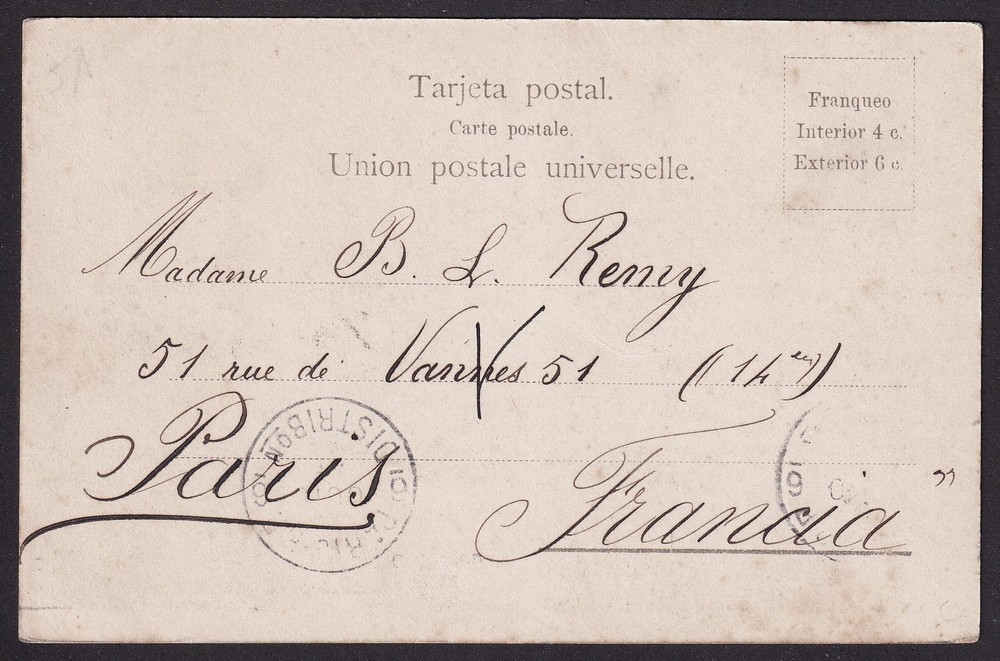 Tarjeta postal.
Carte postale.
Union postale universelle.
Franqueo
Interior 4 c.
Exterior 6 c.
Madame B. L. Remy
51 rue de Vannes 51 (14 em)
Paris
Francia
DISTRIBON
PARIS